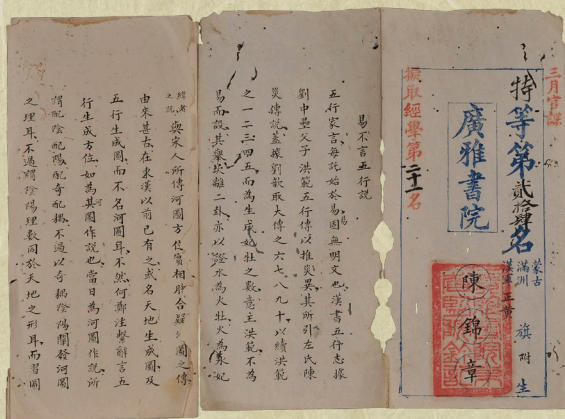 三月官課
特等第貳拾肆名
廣雅書院
擬取經學第二十一名
蒙古
滿洲 旗附生
漢軍正黃
陳錦章
易不言五行說
五行家言每託始於易易固無明文也漢書五行志據
劉中壘父子洪範五行傳以推災異其所引左氏陳
災傳說蓋據劉歆取大傳之六七八九十以續洪範
之一二三四五而為生成妃牡之數意主洪範不為
易而設其舉坎離二卦亦以證水為火牡火為水妃
與宋人所傳河圖方位實相胳合疑 圖之傳
由來甚古在東漢以前已有之或名天地生成圖及
五行生成圖而不名河圖耳不然何鄭注繫辭言五
行生成方位如為其圖作說也當日為河圖作說所
謂配陰配陽配奇配耦不過以奇耦陰陽闡發河圖
之理耳不過謂陰陽理數同於天地之形耳而習圖